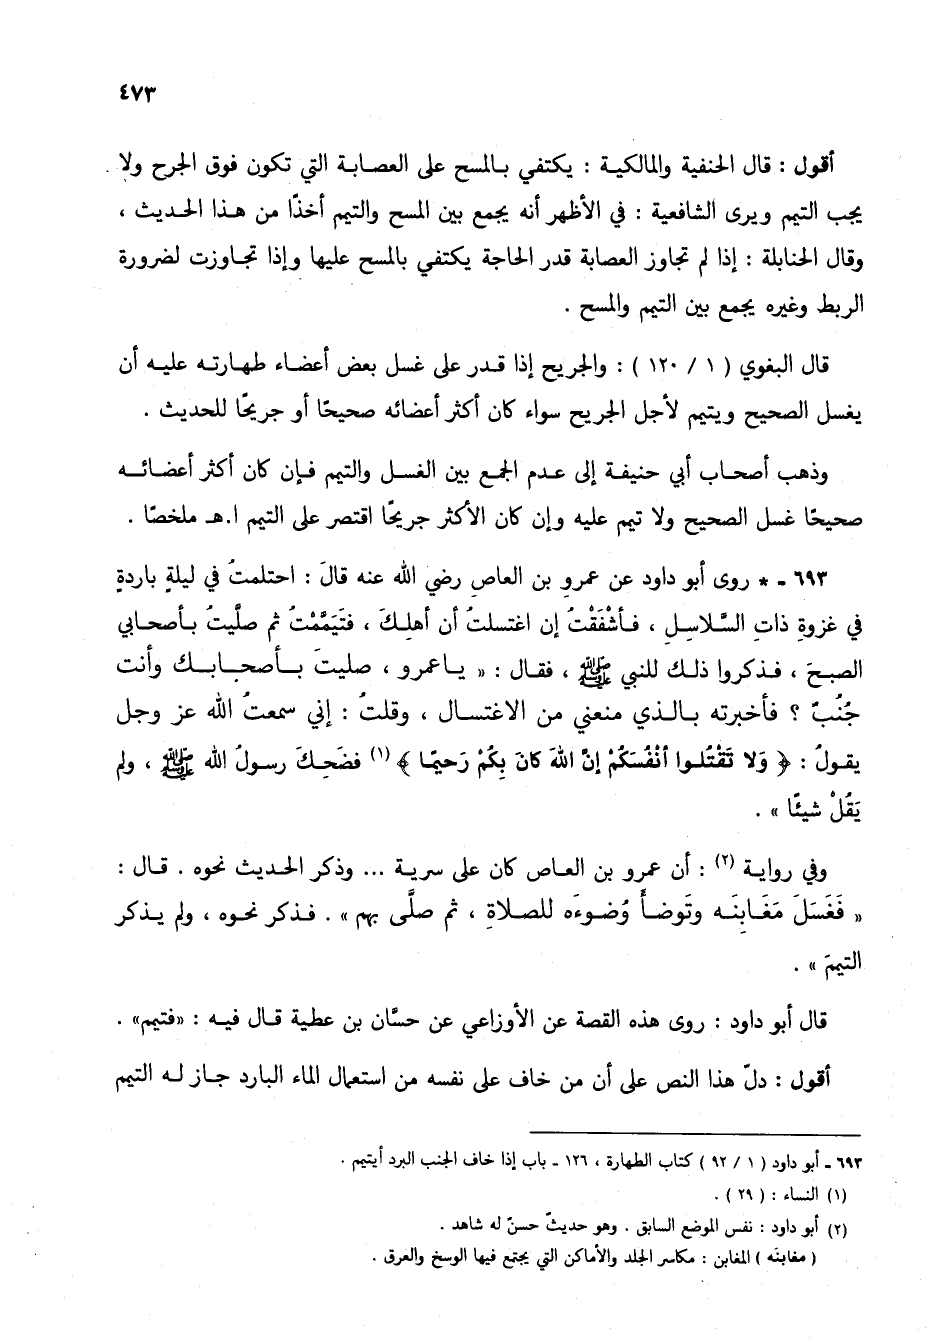 ٤٧٣
أقول : قال الحنفية والمالكية : يكتفي بالمسح على العصابة التي تكون فوق الجرح ولا
يجب التيم ويرى الشافعية : في الأظهر أنه يجمع بين المسح والتيم أخذًا من هذا الحديث ،
وقال الحنابلة : إذا لم تجاوز العصابة قدر الحاجة يكتفي بالمسح عليها وإذا تجاوزت لضرورة
الربط وغيره يجمع بين التيم والمسح .
قال البغوي ( ١ / ١٢٠ ) : والجريح إذا قدر على غسل بعض أعضاء طهارته عليه أن
يغسل الصحيح ويتيم لأجل الجريح سواء كان أكثر أعضائه صحيحًا أو جريحًا للحديث .
وذهب أصحاب أبي حنيفة إلى عدم الجمع بين الغسل والتيم فإن كان أكثر أعضائه
صحيحًا غسل الصحيح ولا تيم عليه وإن كان الأكثر جريحًا اقتصر على التيم ا.هـ ملخصًا .
٦٩٣ - * روى أبو داود عن عمرو بن العاص رضي الله عنه قالَ : احتلمتُ في ليلةٍ باردةٍ
في غزوةِ ذاتِ السَّلاسلِ ، فأشْفَقْتُ إن اغتسلتُ أن أهلِكَ ، فتَيَمَّمْتُ ثم صلَّيتُ بأصحابي
الصبحَ ، فذكروا ذلك للنبي ﷺ ، فقال : « ياعمرو ، صليتَ بأصحابك وأنت
جُنُبٌ ؟ فأخبرته بالذي منعني من الاغتسال ، وقلتُ : إني سمعتُ الله عز وجل
يقولُ : ﴿ وَلا تَقْتُلوا أنْفُسَكُمْ إنَّ اللهَ كانَ بِكُمْ رَحيمًا ﴾ (١) فضَحِكَ رسولُ الله ﷺ ، ولم
يَقُلْ شيئًا » .
وفي رواية (٢) : أن عمرو بن العاص كان على سرية ... وذكر الحديث نحوه . قال :
« فَغَسَلَ مَغَابِنَه وتَوضأَ وُضوءَه للصلاةِ ، ثم صلَّى بهم » . فذكر نحوه ، ولم يذكر
التيمَ » .
قال أبو داود : روى هذه القصة عن الأوزاعي عن حسَّان بن عطية قال فيه : «فتيم» .
أقول : دلّ هذا النص على أن من خاف على نفسه من استعمال الماء البارد جاز له التيم
٦٩٣ - أبو داود ( ١ / ٩٢ ) كتاب الطهارة ، ١٢٦ - باب إذا خاف الجنب البرد أيتيم .
(١) النساء : ( ٢٩ ) .
(٢) أبو داود : نفس الموضع السابق . وهو حديثٌ حسنٌ له شاهد .
( مغابنَه ) المغابن : مكاسر الجلد والأماكن التي يجتمع فيها الوسخ والعرق .